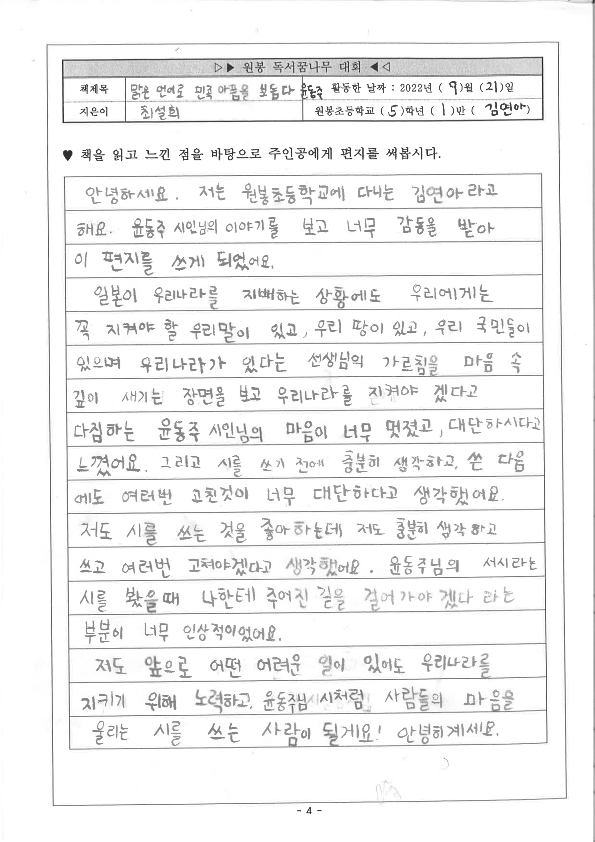 ▷▶ 원봉 독서꿈나무 대회 ◀◁
책제목 맑은 언어로 민족 아픔을 보듬다 윤동주 활동한 날짜 : 2022년 ( 9 )월 ( 21 )일
지은이 최설희 원봉초등학교 ( 5 )학년 ( 1 )반 ( 김연아 )
♥ 책을 읽고 느낀 점을 바탕으로 주인공에게 편지를 써봅시다.
안녕하세요. 저는 원봉초등학교에 다니는 김연아라고
해요. 윤동주 시인님의 이야기를 보고 너무 감동을 받아
이 편지를 쓰게 되었어요.
일본이 우리나라를 지배하는 상황에도 우리에게는
꼭 지켜야 할 우리말이 있고, 우리 땅이 있고, 우리 국민들이
있으며 우리나라가 있다는 선생님의 가르침을 마음 속
깊이 새기는 장면을 보고 우리나라를 지켜야 겠다고
다짐하는 윤동주 시인님의 마음이 너무 멋졌고, 대단하시다고
느꼈어요. 그리고 시를 쓰기 전에 충분히 생각하고, 쓴 다음
에도 여러번 고친것이 너무 대단하다고 생각했어요.
저도 시를 쓰는 것을 좋아하는데 저도 충분히 생각하고
쓰고 여러번 고쳐야겠다고 생각했어요. 윤동주님의 서시라는
시를 봤을때 나한테 주어진 길을 걸어가야 겠다 라는
부분이 너무 인상적이었어요.
저도 앞으로 어떤 어려운 일이 있어도 우리나라를
지키기 위해 노력하고, 윤동주님 시처럼 사람들의 마음을
울리는 시를 쓰는 사람이 될게요! 안녕히계세요.
- 4 -